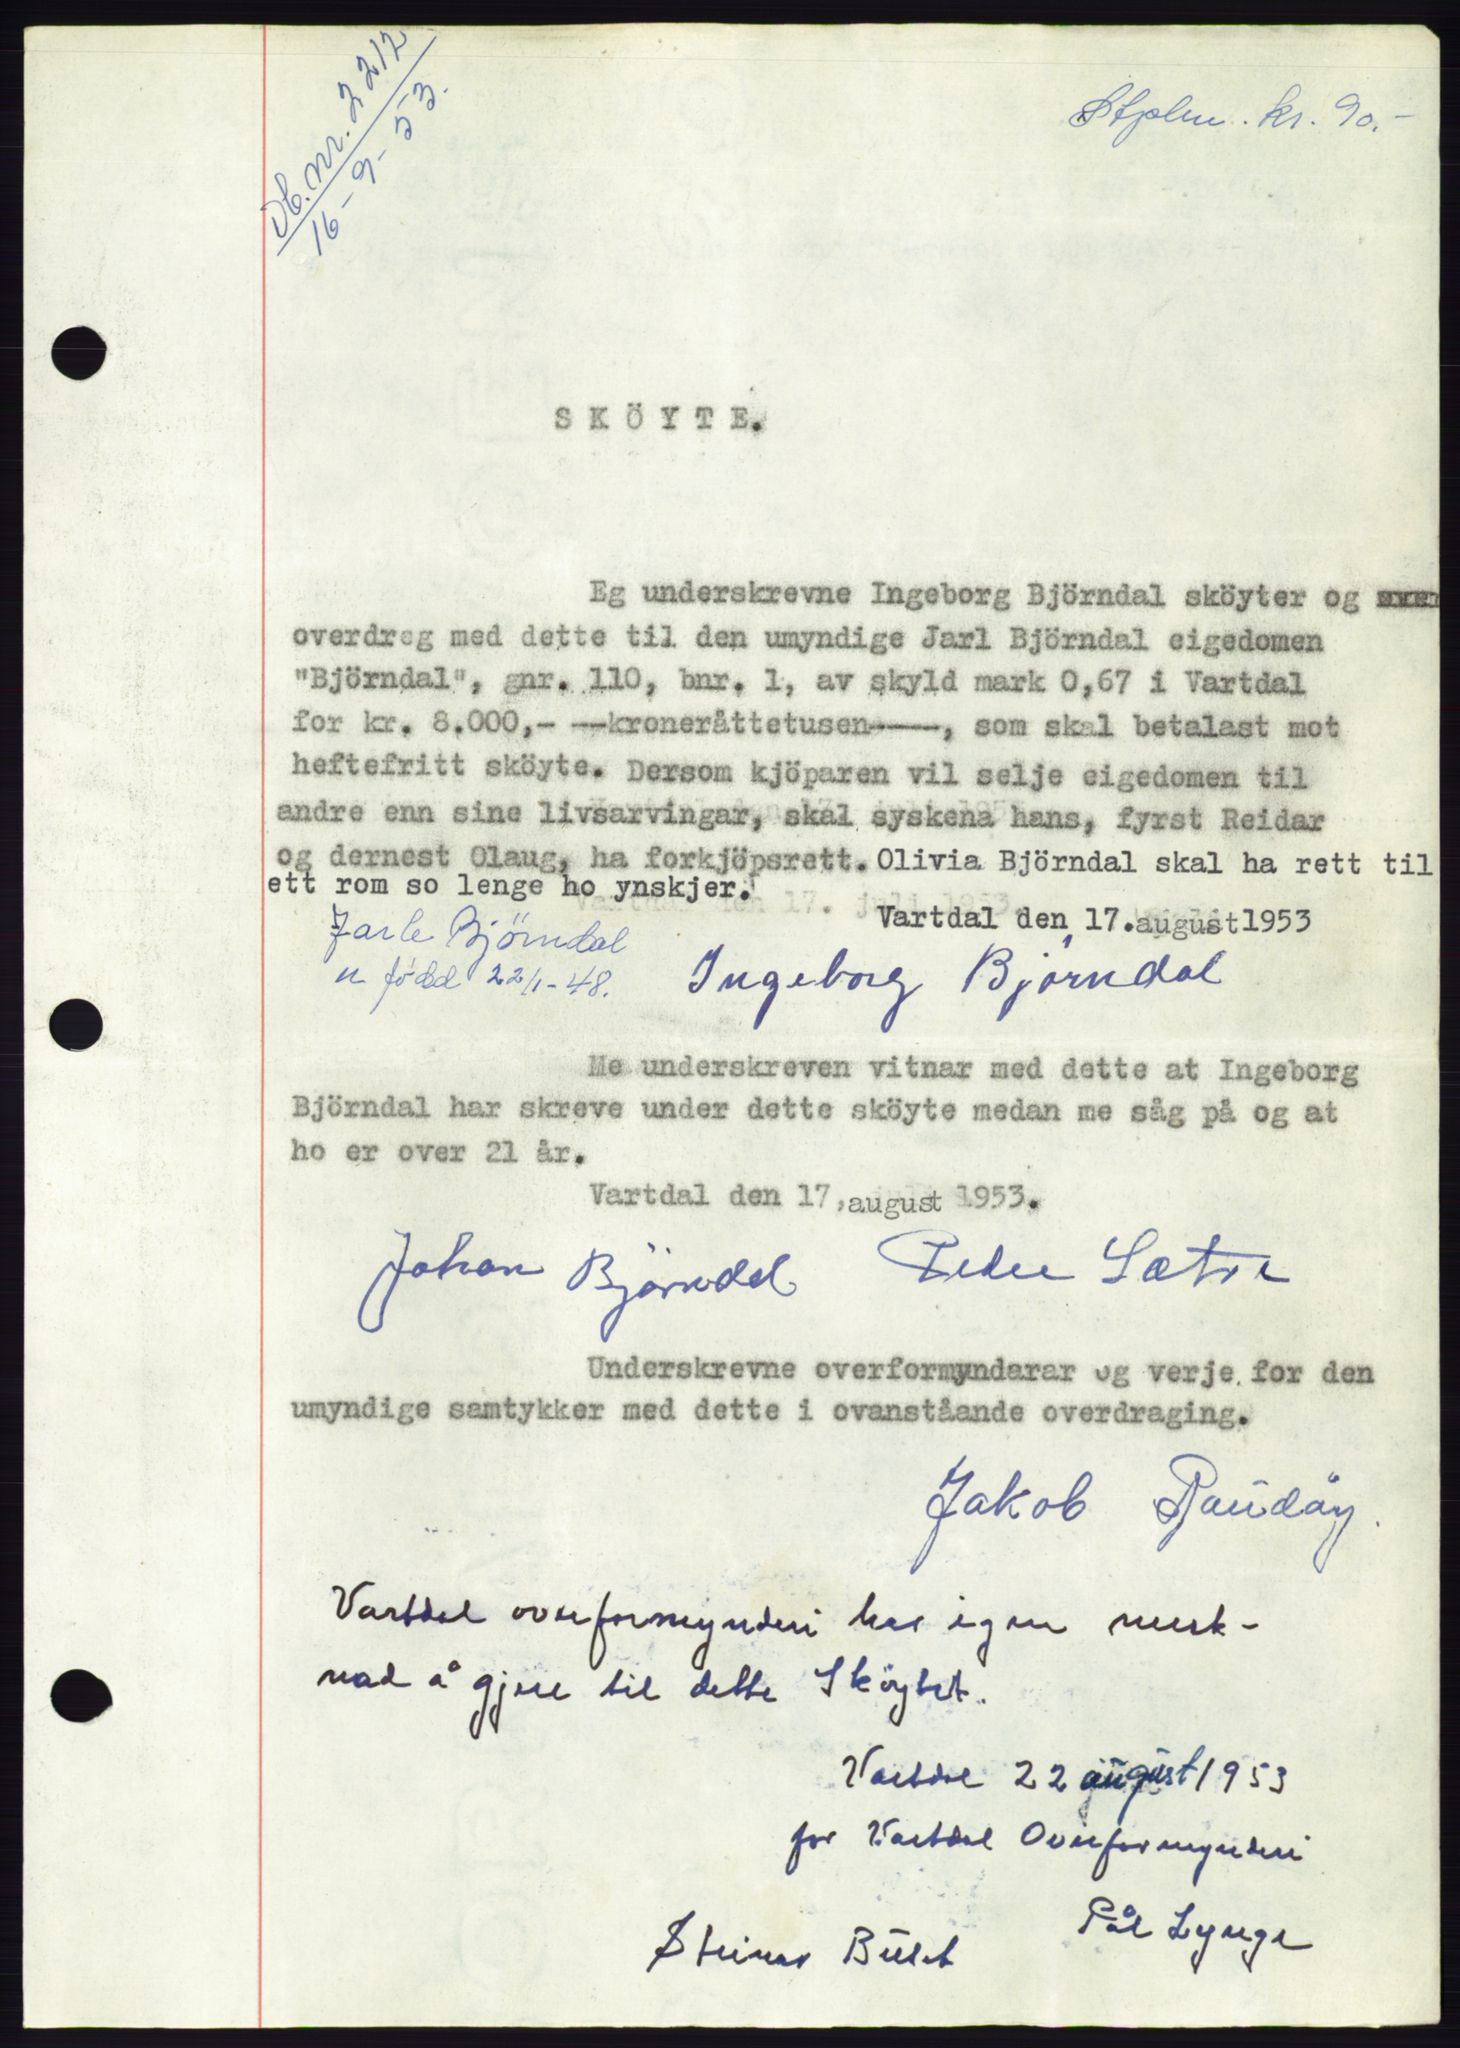 Db. nr. 2212
16-9-53.
Stplm. kr. 90.-
SKÖYTE.
Eg underskrevne Ingeborg Björndal sköyter og
overdreg med dette til den umyndige Jarl Björndal eigedomen
"Björndal", gnr. 110, bnr. 1, av skyld mark 0,67 i Vartdal
for kr. 8.000,- --kroneråttetusen----, som skal betalast mot
heftefritt sköyte. Dersom kjöparen vil selje eigedomen til
andre enn sine livsarvingar, skal syskena hans, fyrst Reidar
og dernest Olaug, ha forkjöpsrett. Olivia Björndal skal ha rett til
ett rom so lenge ho ynskjer.
Vartdal den 17. august 1953
Jarle Bjørndal
er fødd 22/1-48.
Ingeborg Björndal
Me underskreven vitnar med dette at Ingeborg
Björndal har skreve under dette sköyte medan me såg på og at
ho er over 21 år.
Vartdal den 17, august 1953.
Johan Björndal Peder Sætre
Underskrevne overformyndarar og verje for den
umyndige samtykker med dette i ovanståande overdraging.
Jakob
Vartdal overformynderi har igen merk-
nad å gjere til dette Sköytet.
Vartdal 22 august 1953
for Vartdal Overformynderi
Pål Lynge
Steinar